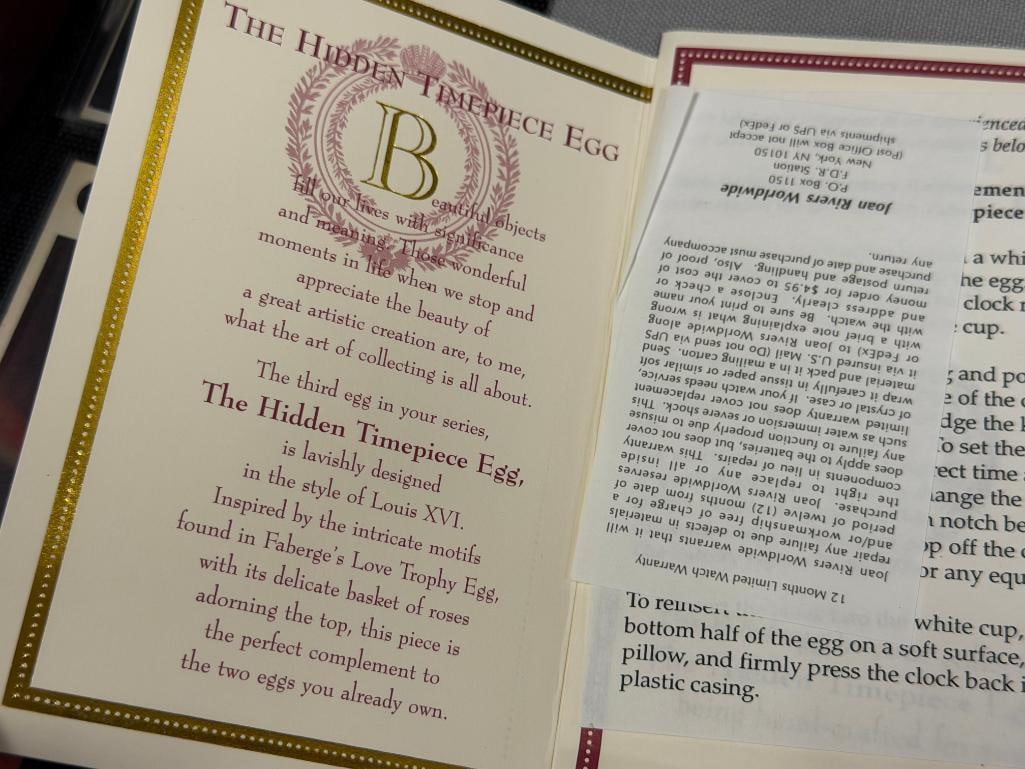 THE HIDDEN TIMEPIECE EGG
Beautiful objects
fill our lives with significance
and meaning. Those wonderful
moments in life when we stop and
appreciate the beauty of
a great artistic creation are, to me,
what the art of collecting is all about.
The third egg in your series,
The Hidden Timepiece Egg,
is lavishly designed
in the style of Louis XVI.
Inspired by the intricate motifs
found in Faberge's Love Trophy Egg,
with its delicate basket of roses
adorning the top, this piece is
the perfect complement to
the two eggs you already own.
12 Months Limited Watch Warranty
Joan Rivers Worldwide warrants that it will
repair any failure due to defects in materials
and/or workmanship free of charge for a
period of twelve (12) months from date of
purchase. Joan Rivers Worldwide reserves
the right to replace any or all inside
components in lieu of repairs. This warranty
does apply to the batteries, but does not cover
any failure to function properly due to misuse
such as water immersion or severe shock. This
limited warranty does not cover replacement
of crystal or case. If your watch needs service,
wrap it carefully in tissue paper or similar soft
material and pack it in a mailing carton. Send
it via insured U.S. Mail (Do not send via UPS
or FedEx) to Joan Rivers Worldwide along
with a brief note explaining what is wrong
with the watch. Be sure to print your name
and address clearly. Enclose a check or
money order for $4.95 to cover the cost of
return postage and handling. Also, proof of
purchase and date of purchase must accompany
any return.
Joan Rivers Worldwide
P.O. Box 1150
F.D.R. Station
New York, NY 10150
(Post Office Box will not accept
shipments via UPS or FedEx)
a whi
the egg
clock
cup.
and
of the
the
To set the
time
the
notch
off the
or any
To reinsert white cup,
bottom half of the egg on a soft surface,
pillow, and firmly press the clock back
plastic casing.